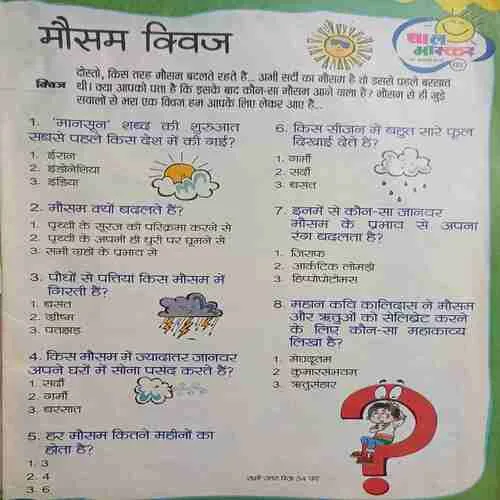 मौसम क्विज
बाल
भास्कर
क्विज
दोस्तो, किस तरह मौसम बदलते रहते है... अभी सर्दी का मौसम है तो इससे पहले बरसात
थी। क्या आपको पता है कि इसके बाद कौन-सा मौसम आने वाला है? मौसम से ही जुड़े
सवालों से भरा एक क्विज हम आपके लिए लेकर आए है...
1. 'मानसून' शब्द की शुरुआत
सबसे पहले किस देश में की गई?
1. ईरान
2. इंडोनेशिया
3. इंडिया
2. मौसम क्यों बदलते हैं?
1. पृथ्वी के सूरज की परिक्रमा करने से
2. पृथ्वी के अपनी ही धुरी पर घूमने से
3. सभी ग्रहों के प्रभाव से
3. पौधों से पत्तियां किस मौसम में
गिरती हैं?
1. बसंत
2. ग्रीष्म
3. पतझड़
4. किस मौसम में ज्यादातर जानवर
अपने घरों में सोना पसंद करते हैं?
1. सर्दी
2. गर्मी
3. बरसात
5. हर मौसम कितने महीनों का
होता है?
1. 3
2. 4
3. 6
6. किस सीजन में बहुत सारे फूल
दिखाई देते हैं?
1. गर्मी
2. सर्दी
3. बसंत
7. इनमें से कौन-सा जानवर
मौसम के प्रभाव से अपना
रंग बदलता है?
1. जिराफ
2. आर्कटिक लोमड़ी
3. हिप्पोपोटेमस
8. महान कवि कालिदास ने मौसम
और ऋतुओं को सेलिब्रेट करने
के लिए कौन-सा महाकाव्य
लिखा है?
1. मेघदूतम
2. कुमारसंभवम
3. ऋतुसंहार
सही उत्तर पेज 34 पर